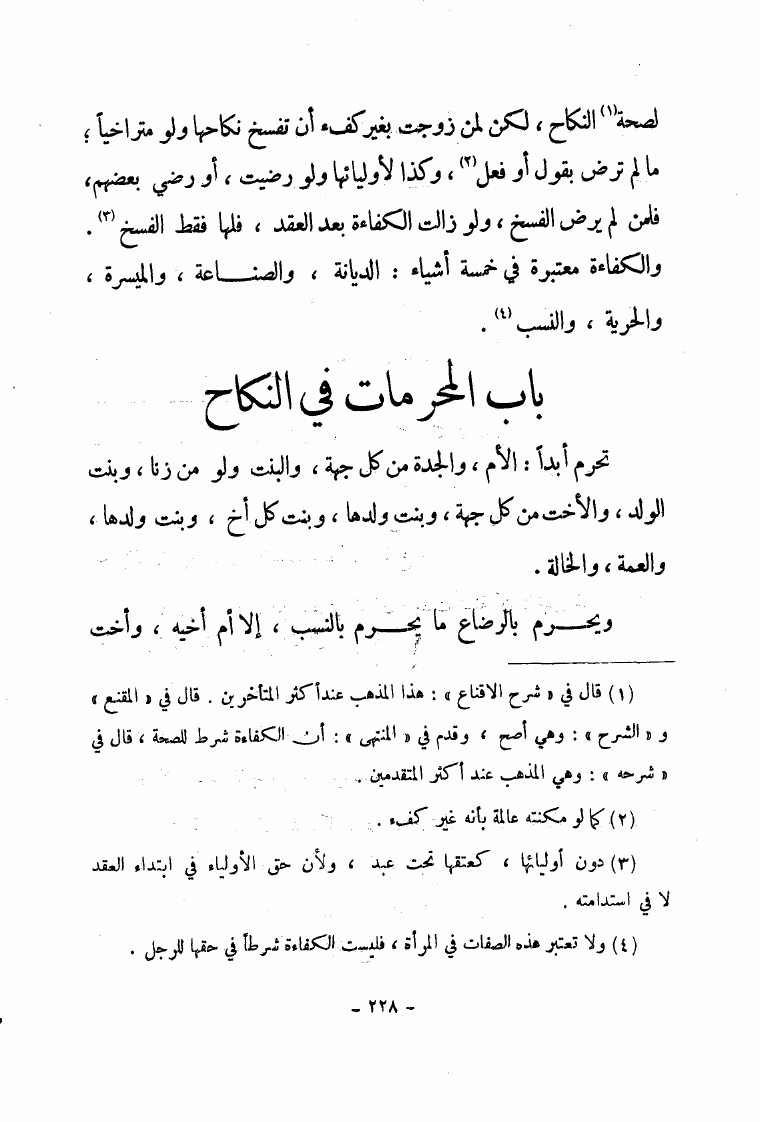 لصحة(١) النكاح ، لكن لمن زوجت بغير كفء أن تفسخ نكاحها ولو متراخياً ؛
ما لم ترض بقول أو فعل(٢) ، وكذا لأوليائها ولو رضيت ، أو رضي بعضهم،
فلمن لم يرض الفسخ ، ولو زالت الكفاءة بعد العقد ، فلها فقط الفسخ(٣) .
والكفاءة معتبرة في خمسة أشياء : الديانة ، والصنـــاعة ، والميسرة ،
والحرية ، والنسب(٤) .
باب المحرمات في النكاح
تحرم أبداً : الأم ، والجدة من كل جهة ، والبنت ولو من زنا ، وبنت
الولد ، والأخت من كل جهة ، وبنت ولدها ، وبنت كل أخ ، وبنت ولدها ،
والعمة ، والخالة .
ويحـــرم بالرضاع ما يحـــرم بالنسب ، إلا أم أخيه ، وأخت
(١) قال في « شرح الاقناع » : هذا المذهب عند أكثر المتأخرين . قال في « المقنع »
و « الشرح » : وهي أصح ، وقدم في « المنتهى » : أن الكفاءة شرط للصحة ، قال في
« شرحه » : وهي المذهب عند أكثر المتقدمين .
(٢) كما لو مكنته عالمة بأنه غير كفء .
(٣) دون أوليائها ، كعتقها تحت عبد ، ولأن حق الأولياء في ابتداء العقد
لا في استدامته .
(٤) ولا تعتبر هذه الصفات في المرأة ، فليست الكفاءة شرطاً في حقها للرجل .
- ٢٢٨ -